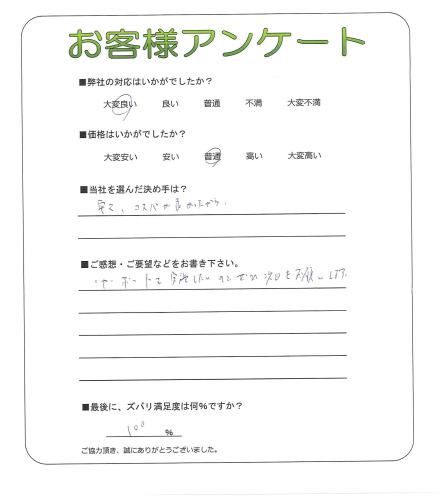 お客様アンケート
■弊社の対応はいかがでしたか？
大変良い 良い 普通 不満 大変不満
■価格はいかがでしたか？
大変安い 安い 普通 高い 大変高い
■当社を選んだ決め手は？
コスパが良かったから。
■ご感想・ご要望などをお書き下さい。
■最後に、ズバリ満足度は何％ですか？
100 ％
ご協力頂き、誠にありがとうございました。